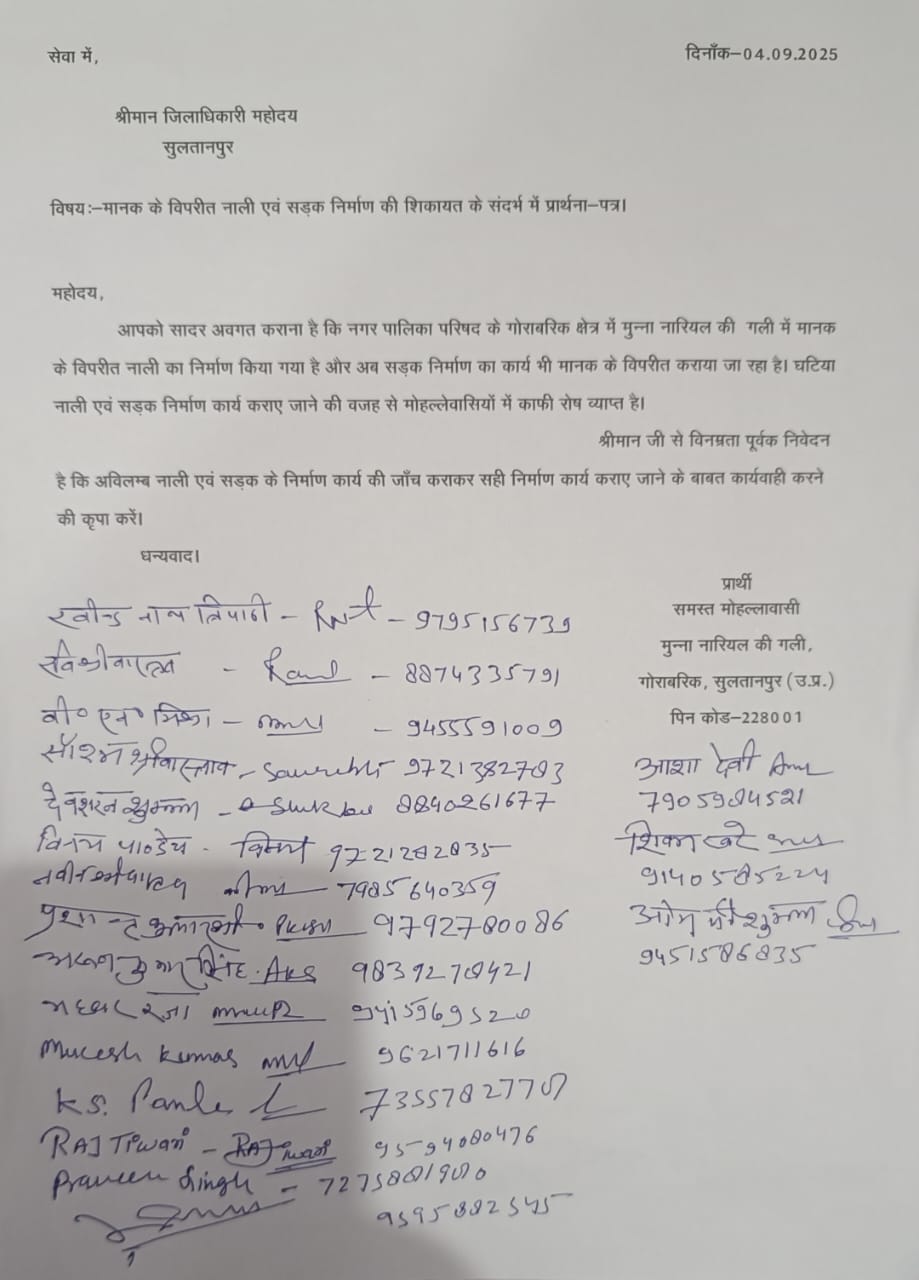 सेवा में,
दिनाँक–04.09.2025
श्रीमान जिलाधिकारी महोदय
सुलतानपुर
विषयः–मानक के विपरीत नाली एवं सड़क निर्माण की शिकायत के संदर्भ में प्रार्थना–पत्र।
महोदय,
आपको सादर अवगत कराना है कि नगर पालिका परिषद के गोराबरिक क्षेत्र में मुन्ना नारियल की गली में मानक
के विपरीत नाली का निर्माण किया गया है और अब सड़क निर्माण का कार्य भी मानक के विपरीत कराया जा रहा है। घटिया
नाली एवं सड़क निर्माण कार्य कराए जाने की वजह से मोहल्लेवासियों में काफी रोष व्याप्त है।
श्रीमान जी से विनम्रता पूर्वक निवेदन
है कि अविलम्ब नाली एवं सड़क के निर्माण कार्य की जाँच कराकर सही निर्माण कार्य कराए जाने के बाबत कार्यवाही करने
की कृपा करें।
धन्यवाद।
प्रार्थी
समस्त मोहल्लावासी
मुन्ना नारियल की गली,
गोराबरिक, सुलतानपुर (उ.प्र.)
पिन कोड–228001
रवीन्द्र नाथ त्रिपाठी – – 9795156739
– – 8874335791
वी० एन० मिश्रा – – 9455591009
सौरभ श्रीवास्तव – Saurabh 9721382783
देवशरन शुक्ल – 8840261677
विनय पाण्डेय - विनय 9721282835
7985640359
9792780086
कुमार सिंह. AKS 9839278421
रजा 9415969520
Mucesh Kumar 9621711616
K.S. 7355782770
RAJ Tiwari – 9594080476
Praveen Singh – 7275881980
9595882545
आशा देवी
7905984521
शिखा खरे
9140585224
ओम जी शुक्ल
9451586835